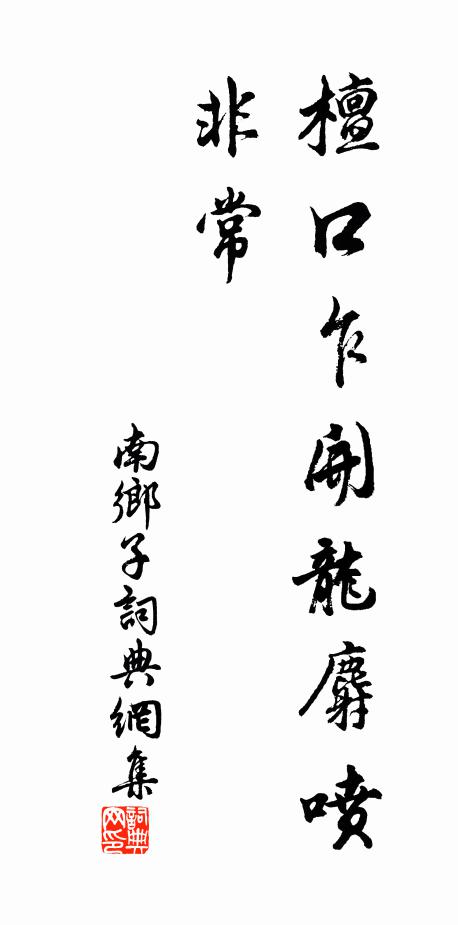 檀口乍開龍麝噴
非常
南鄉子詞典網集
詞典
网印